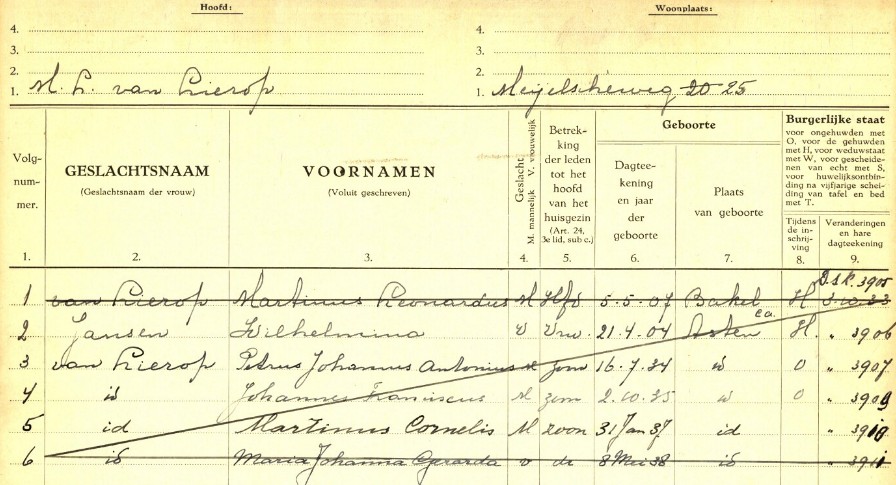 Hoofd: Woonplaats:
4. 4.
3. 3.
2. 2.
1. M. L. van Lierop 1. Meijelscheweg 20 25
Volg-
num-
mer.
GESLACHTSNAAM
(Geslachtsnaam der vrouw)
VOORNAMEN
(Voluit geschreven)
Geslacht.
M. mannelijk V. vrouwelijk
Betrek-
king
der leden
tot het
hoofd
van het
huisgezin
(Art. 24,
3e lid, sub c.)
Geboorte
Dagtee-
kening
en jaar
der
geboorte
Plaats
van geboorte
Burgerlijke staat
voor ongehuwden met
O, voor de gehuwden
met H, voor weduwstaat
met W, voor gescheide-
nen van echt met S,
voor huwelijksontbin-
ding na vijfjarige schei-
ding van tafel en bed
met T.
Tijdens
de in-
schrij-
ving
Veranderingen
en hare
dagteekening
1. 2. 3. 4. 5. 6. 7. 8. 9.
D.s.k. 3905
1 van Lierop Martinus Leonardus M Hfd 5.5.07 Bakel H 3.10.33
ca.
2 Jansen Wilhelmina V Vrw. 21.4.04 Asten H. " 3906
3 van Lierop Petrus Johannus Antonius M zoon 16.7.34 id O " 3907
4 id Johannes Franciscus M zoon 2.10.35 id O " 3909
5 id Martinus Cornelis M zoon 31 Jan 37 id " 3910
6 id Maria Johanna Gerarda v do 8 Mei 38 id " 3911